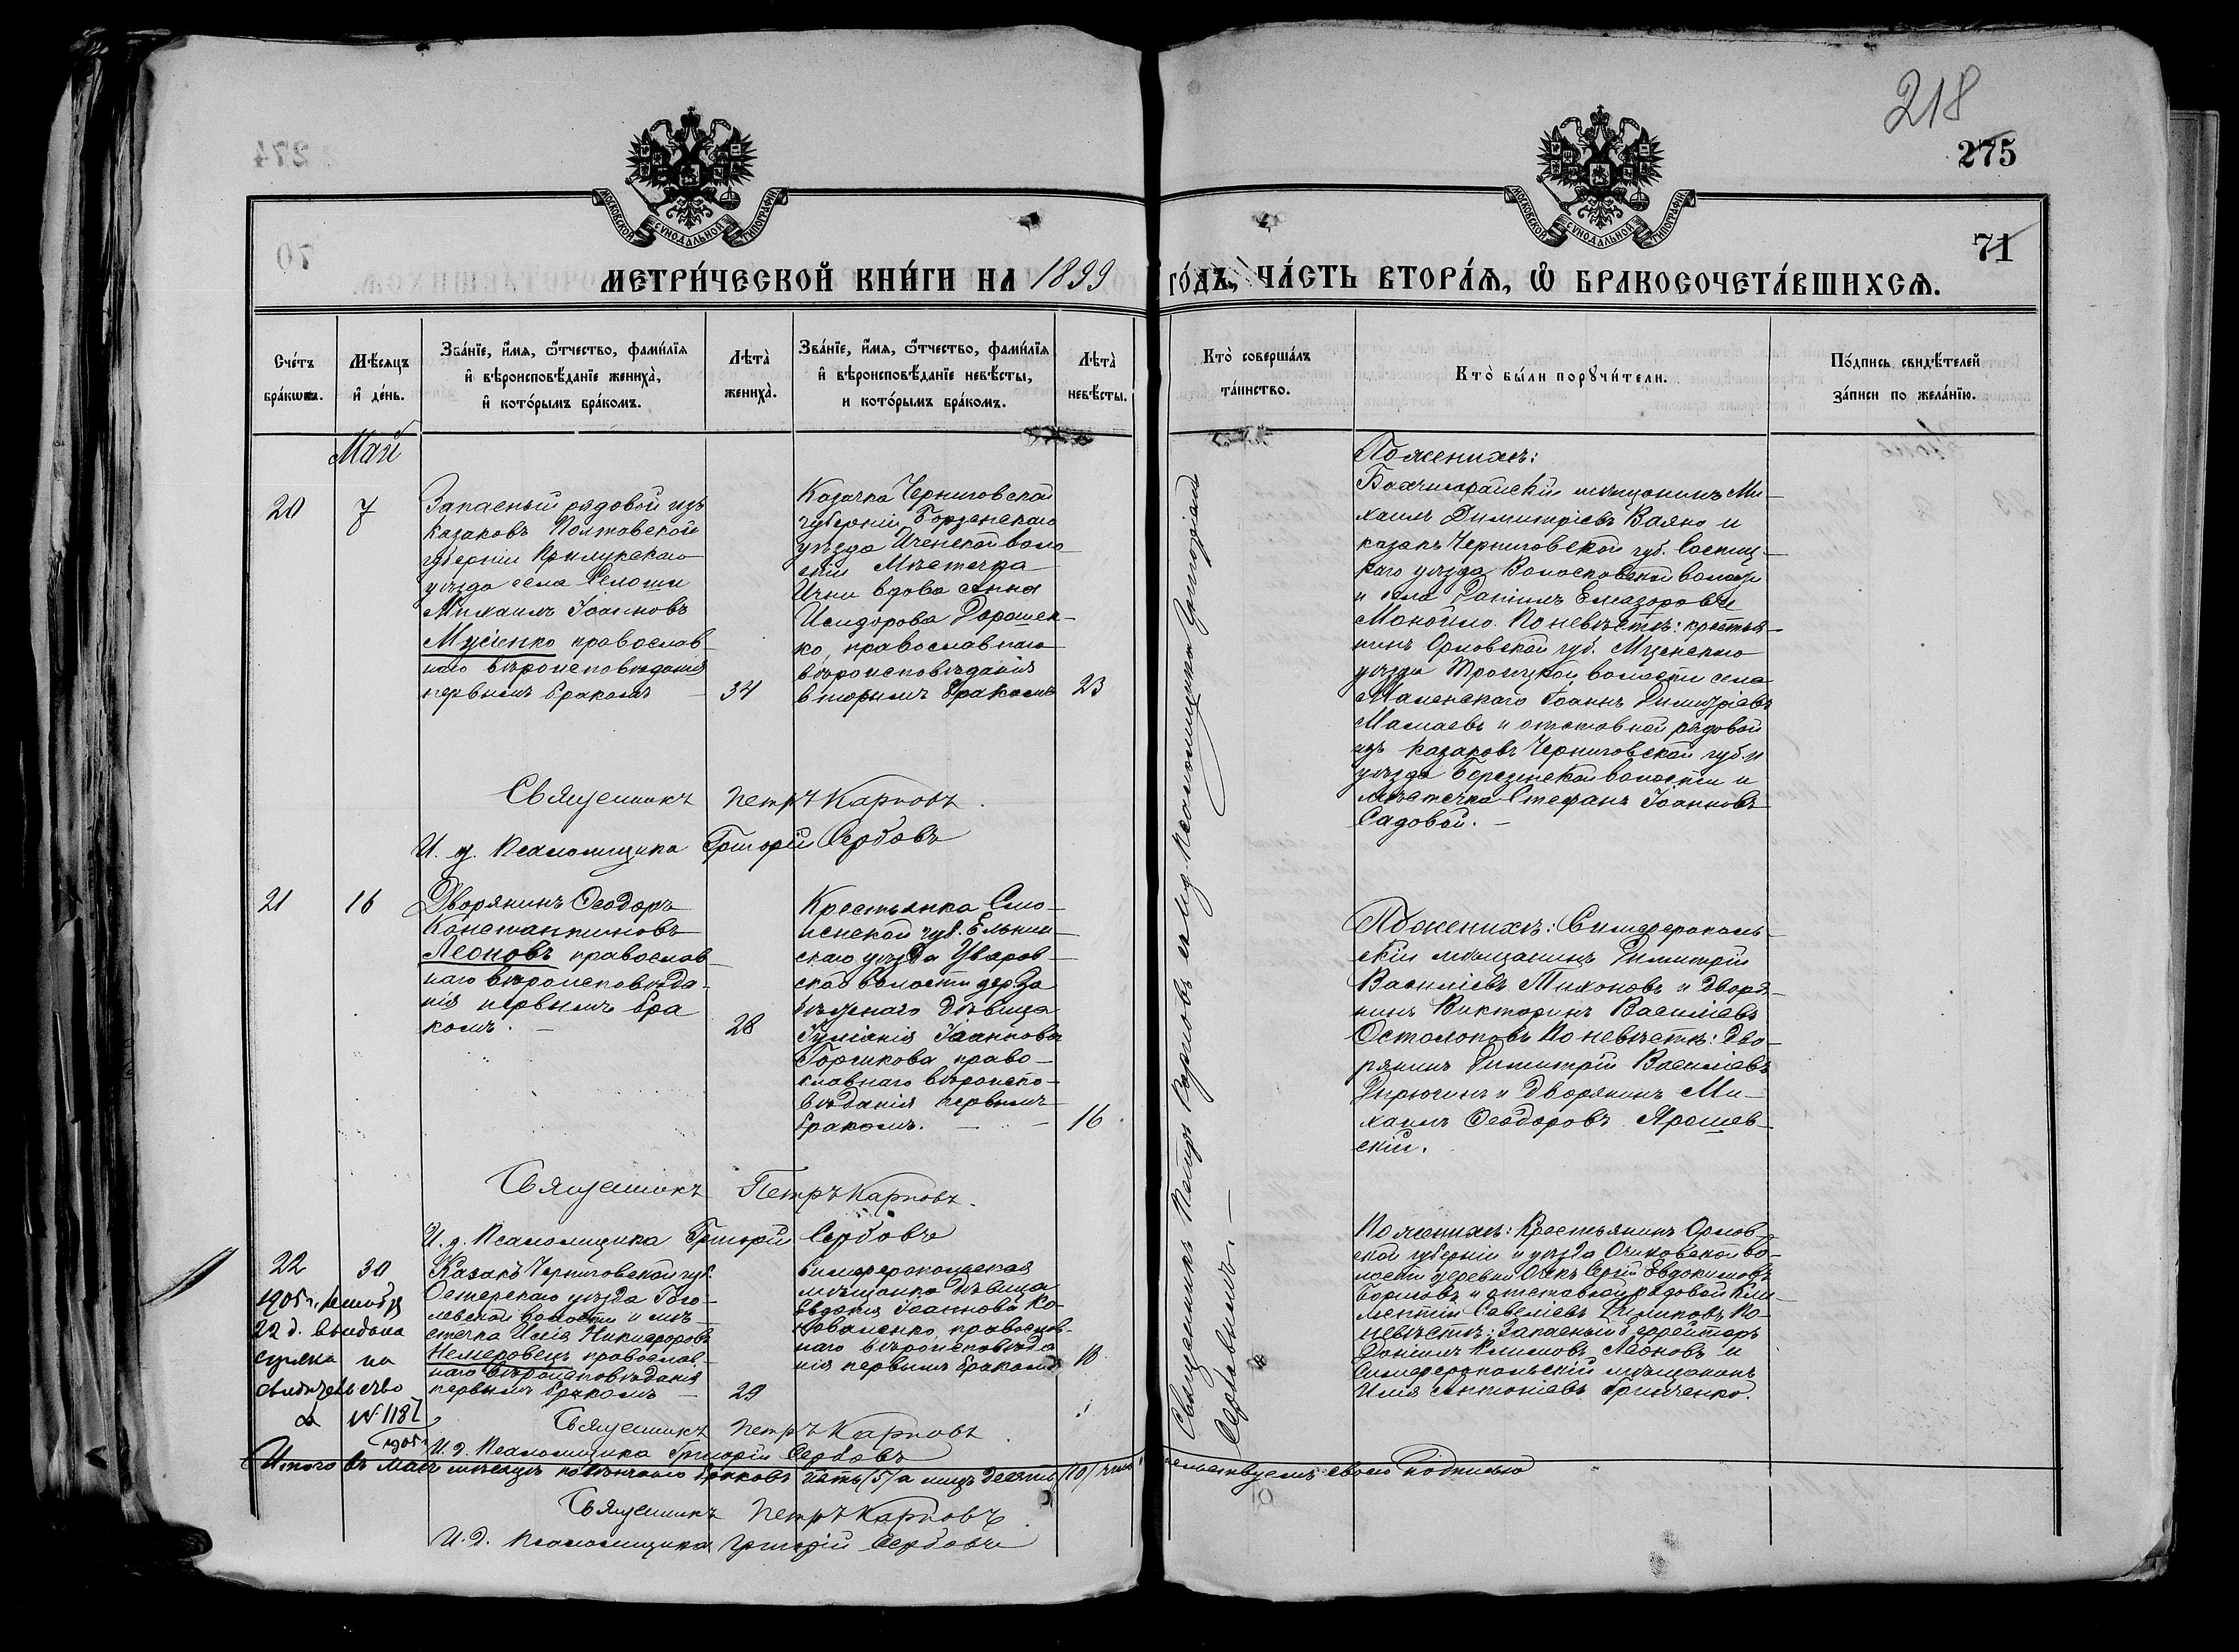 218
275
71
МОСКОВСКОЙ СѴНОДАЛЬНОЙ ТИПОГРАФІИ
МОСКОВСКОЙ СѴНОДАЛЬНОЙ ТИПОГРАФІИ
МЕТРИ́ЧЕСКОЙ КНИ́ГИ НА 1899 ГО́ДЪ, ЧА́СТЬ ВТОРА́Ѧ, Ѡ҆ БРАКОСОЧЕТА́ВШИХСѦ.
Сче́тъ
бра́кωвъ.
Мѣ́сяцъ
и҆ де́нь.
Зва́нїе, и҆́мя, ѻ҆́тчество, фами́лїя
и҆ вѣроисповѣ́данїе жениха̀,
и҆ кото́рымъ бра́комъ.
Лѣта̀
жениха̀.
Зва́нїе, и҆́мя, ѻ҆́тчество, фами́лїя
и҆ вѣроисповѣ́данїе невѣ́сты,
и кото́рымъ бра́комъ.
Лѣта̀
невѣ́сты.
Кто̀ соверша́лъ
та́инство.
Кто̀ бы́ли порꙋчи́тели.
По́дпись свидѣ́телей
за́писи по жела́нїю.
Май
20
7
Запасный рядовой изъ
казаковъ Полтавской
губерніи Прилукскаго
уѣзда села
Михаилъ Іоанновъ
Мусіенко православ-
наго вѣроисповѣданія
первымъ бракомъ —
34
Казачка Черниговской
губерніи Борзенскаго
уѣзда Иченской воло
сти Мѣстечка
Ични вдова Анна
Исидорова Дорошен-
ко, православнаго
вѣроисповѣданія
вторымъ бракомъ
23
По женихѣ:
Бахчисарайскій мѣщанинъ Ми-
хаилъ Димитріевъ Ваяно и
казакъ Черниговской губ. Сосниц-
каго уѣзда Волосковской волости
и села Даніилъ Елеазоровъ
Манойло. По невѣстѣ: крестья-
нинъ Орловской губ. Мценскаго
уѣзда Троицкой волости села
Іоаннъ Димитріевъ
Мамаевъ и отставной рядовой
изъ казаковъ Черниговской губ. и
уѣзда Березенской волости и
мѣстечка Стефанъ Іоанновъ
Садовой. —
Священникъ Петръ Карповъ.
И. д. Псаломщика Григорій Сербовъ
21
16
Дворянинъ Ѳеодоръ
Константиновъ
Леоновъ православ-
наго вѣроисповѣда-
нія первымъ бра
комъ. —
28
Крестьянка Смо-
ленской губ. Ельнин-
скаго уѣзда Уваров-
ской волости дер. За
дѣвица
Іуліанія Іоаннова
Горшкова право-
славнаго вѣроиспо-
вѣданія первымъ
бракомъ. —
16
По женихѣ: Симферополь-
скій мѣщанинъ Димитрій
Василіевъ Тихоновъ и дворя-
нинъ Викторинъ Василіевъ
Остолоповъ По невѣстѣ: Дво-
рянинъ Димитрій Василіевъ
Дирюгинъ и Дворянинъ Ми-
хаилъ Ѳеодоровъ Ярошев-
скій.
Священникъ Петръ Карповъ.
И. д. Псаломщика Григорій Сербовъ
22
30
1905 г. октября
22 д. выдана
справка на
свидѣтельство
за № 1187
1905 г.
Казакъ Черниговской губ.
Остерскаго уѣзда Гого-
левской волости и мѣ-
стечка Илія Никифоровъ
Немеровецъ православ-
наго вѣроисповѣданія
первымъ бракомъ —
29
Симферопольская
мѣщанка дѣвица
Евдокія Іоаннова Ко-
новаленко, православ-
наго вѣроисповѣда
нія первымъ бракомъ
18
По женихѣ: Крестьянинъ Орлов-
ской губерніи и уѣзда волости
деревни Сергій Евдокимовъ
Борисовъ и отставной рядовой Кли-
ментій Савеліевъ По
невѣстѣ: Запасный ефрейторъ
Даніилъ Климовъ Леоновъ и
Симферопольскій мѣщанинъ
Илія Антоніевъ Гринченко.
Священникъ Петръ Карповъ
И. д. Псаломщика Григорій Сербовъ
Итого въ маѣ мѣсяцѣ повѣнчано браковъ пять /5/ а лицъ десять /10/ своею подписью
Священникъ Петръ Карповъ
И. д. Псаломщика Григорій Сербовъ
Священникъ Петръ Карповъ съ И.д. Псаломщика Григоріемъ
Сербовымъ. —